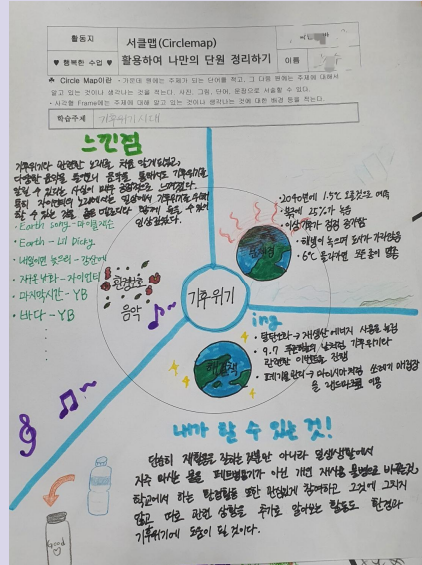 활동지
♥ 행복한 수업 ♥
서클맵(Circlemap)
활용하여 나만의 단원 정리하기
이름
♣ Circle Map이란 - 가운데 원에는 주제가 되는 단어를 적고, 그 다음 원에는 주제에 대해서
알고 있는 것이나 생각나는 것을 적는다. 사진, 그림, 단어, 문장으로 서술할 수 있다.
- 사각형 Frame에는 주제에 대해 알고 있는 것이나 생각나는 것에 대한 배경 등을 적는다.
학습주제
기후위기시대
느낀점
기후위기와 관련한 노래를 처음 알게되었고,
다양한 음악을 들으면서 음악을 통해서도 기후위기를
알릴 수 있다는 사실이 매우 긍정적으로 느껴졌다.
특히 자이언티의 노래에서는 일상에서 기후위기를 위해
할 수 있는
인상깊었다.
Earth song - 마이클잭슨
Earth - Lil Dicky
내일이면 늦으리 -
자이언티
마지막시간 - YB
바다 - YB
음악
기후위기
2040년에 1.5℃ 오를것으로 예측
25%가 녹음
이상기후가 점점 증가함
해빙이 녹으며
6℃ 올라가면 모든
ing
탈탄소화 → 재생산 에너지 사용을 높임
9.7 푸른하늘의 날처럼 기후위기와
관련한 이벤트를 진행
쓰레기 매립장
을 랜드마크로 이용
해결책
내가 할 수 있는 것!
단순히 재활용을 잘하는 것뿐만 아니라 일상생활에서
자주 마시는 물을 페트병용기가 아닌 개인 재사용 물병으로 바꾸는것,
학교에서 하는 환경활동 또한 관심있게 참여하고 그것에 그치지
않고 따로 관련 상황을 추가로 알아보는 활동도 환경과
기후위기에 도움이 될 것이다.
Good